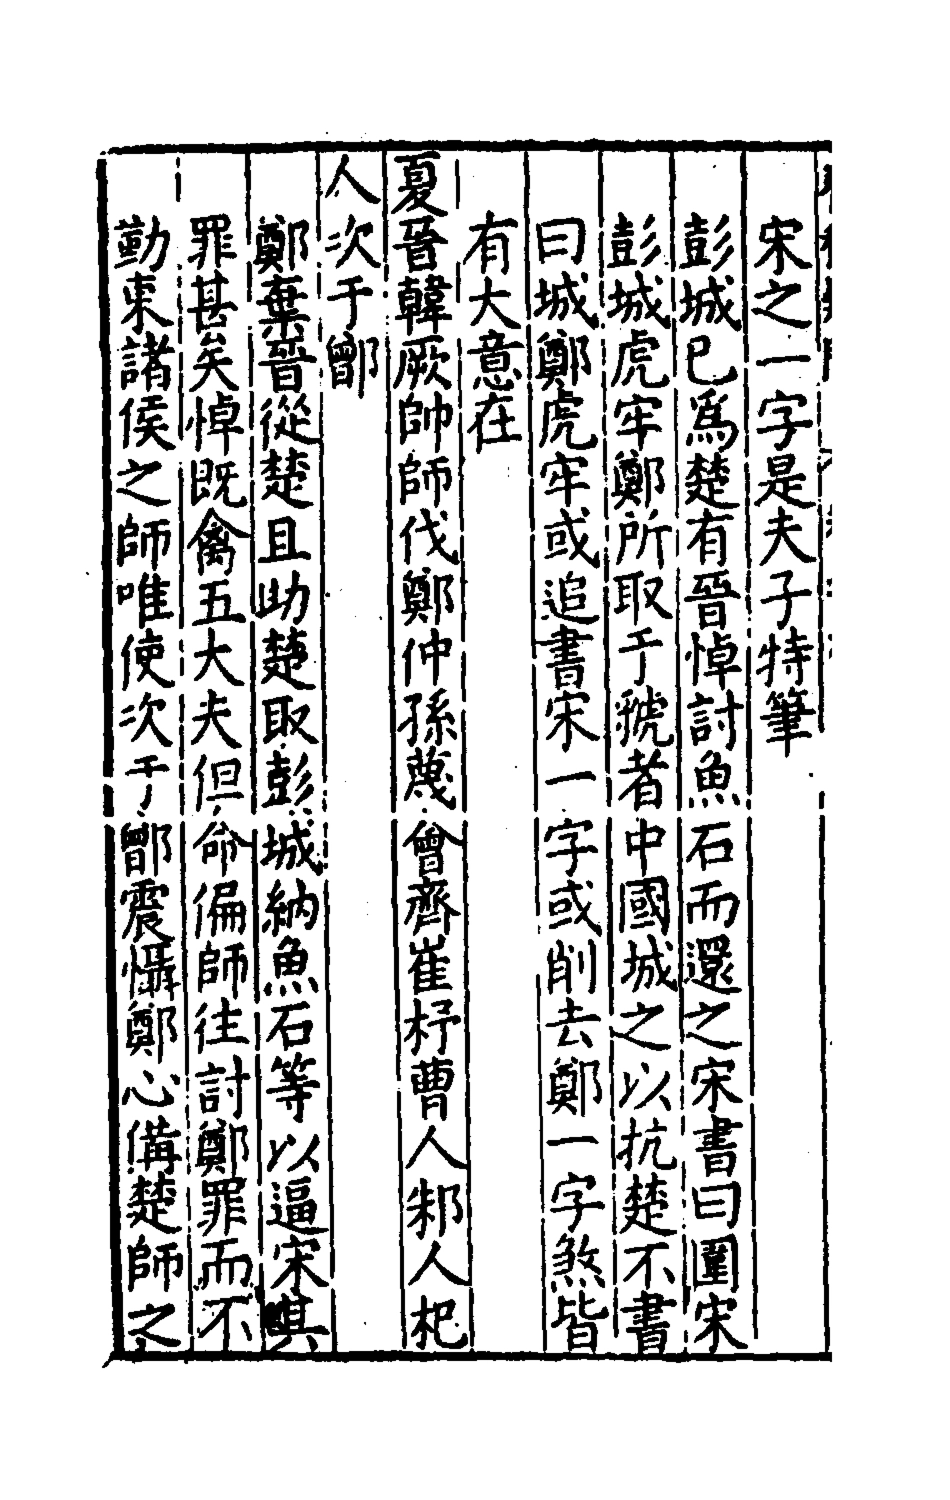 宋之一字是夫子特筆
彭城已爲楚有晉悼討魚石而還之宋書曰圍宋
彭城虎牢鄭所取于虢者中國城之以抗楚不書
曰城鄭虎牢或追書宋一字或削去鄭一字煞皆
有大意在
夏晉韓厥帥師伐鄭仲孫蔑會齊崔杼曹人邾人杞
人次于鄫
鄭棄晉從楚且助楚取彭城納魚石等以逼宋其
罪甚矣悼既禽五大夫但命偏師往討鄭罪而不
勤東諸侯之師唯使次于鄫震懾鄭心備楚師之